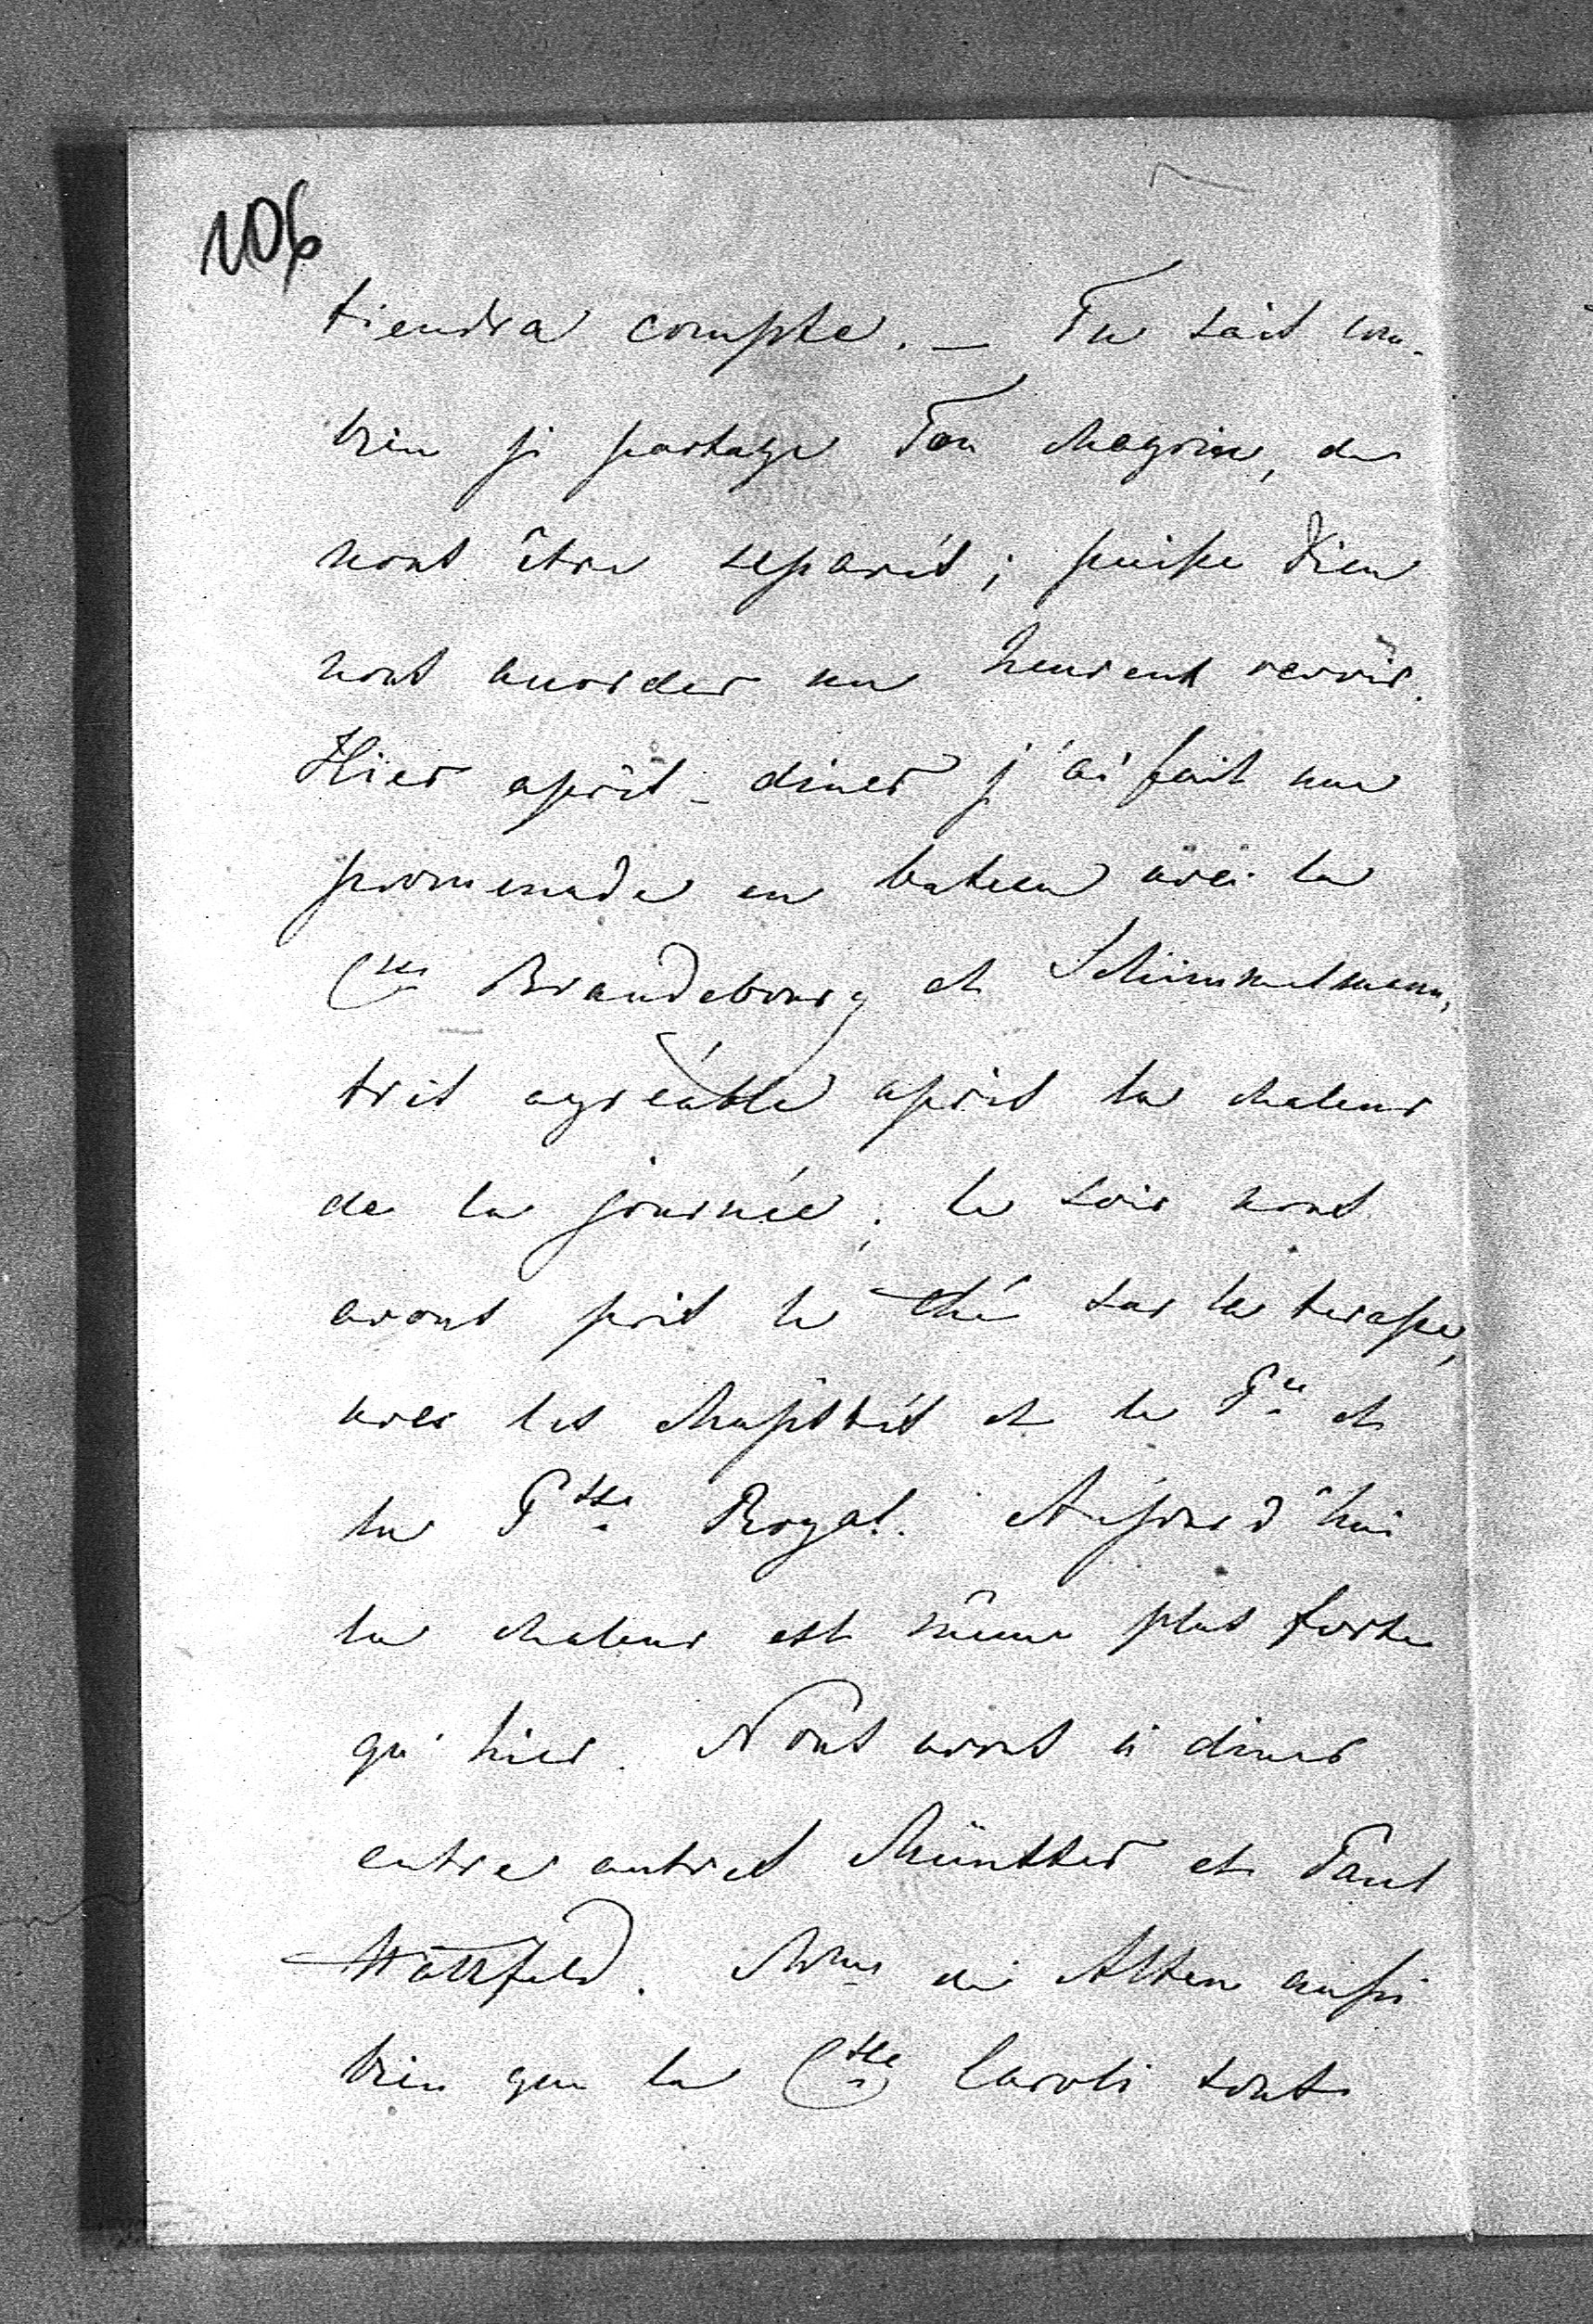 106
tiendra compte. _ Tu sais com-
bien je partage Ton chagrin, de
nous être separés; puisse Dieu
nous accorder un heureux revoir.
Hier après-diner j'ai fait une
promenade en bateau avec la
Ctsse Brandebourg et Schimmelmann,
très agréable après la chaleur
de la journée; le soir nous
avons pris le thé sur la terasse,
avec les Majestés et le Pce et
la Ptsse Royal. Aujourd'hui
la chaleur est même plus forte
qu'hier. Nous avons à diner
entre autres Münster et Paul
Mme de Alten aussi
bien que la Ctsse Caroli sont